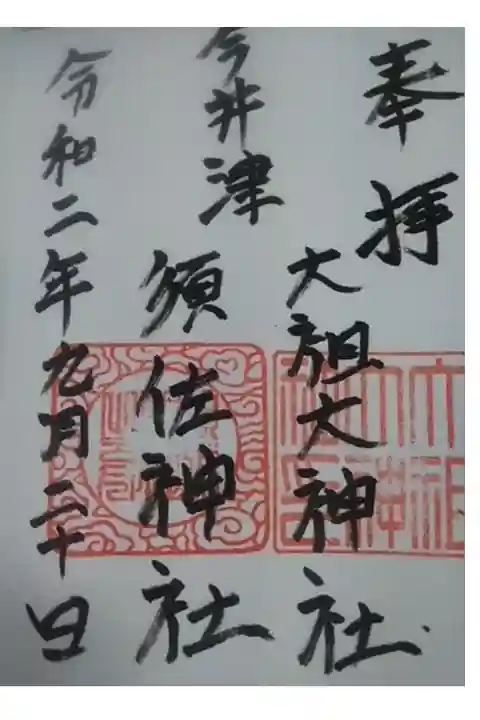 奉拝
大祖大神社
今井津
須佐神社
令和二年九月二十日